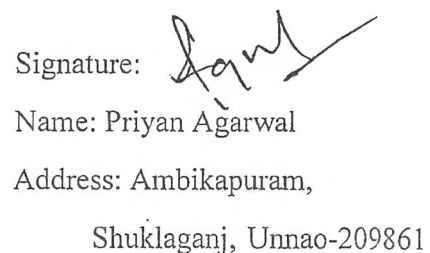 Signature:
Name: Priyan Agarwal
Address: Ambikapuram,
Shuklaganj, Unnao-209861